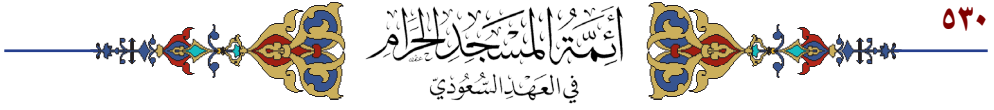 ٥٣٠
أَئِمَّةُ المَسْجِدِ الحَرَامِ
في العَهْدِ السُّعُودِيّ